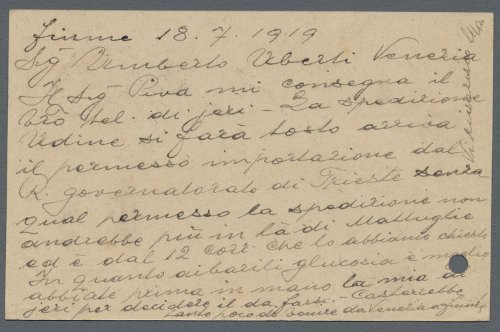 Fiume 18.7.1919
Sig Umberto Uberti Venezia
Il Sig Piva mi consegna il
Vro tel. di jeri. - La spedizione
Udine si farà tosto arriva
il permesso importazione dal
R. governatorato di Trieste senza
qual permesso la spedizione non
andrebbe più in là di Mattuglie
ed è dal 12 corr. che lo abbiamo chiesto
In quanto ai barili glucosia è meglio
abbiate prima in mano la mia di
jeri per decidere il da farsi. - Costerebbe
tanto poco da venire da Venezia a Fiume